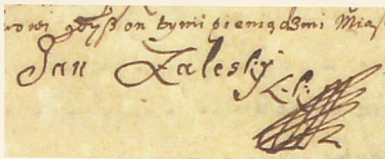 gdyß on tymi pieniądzmi Mias
Jan Zaleskÿ